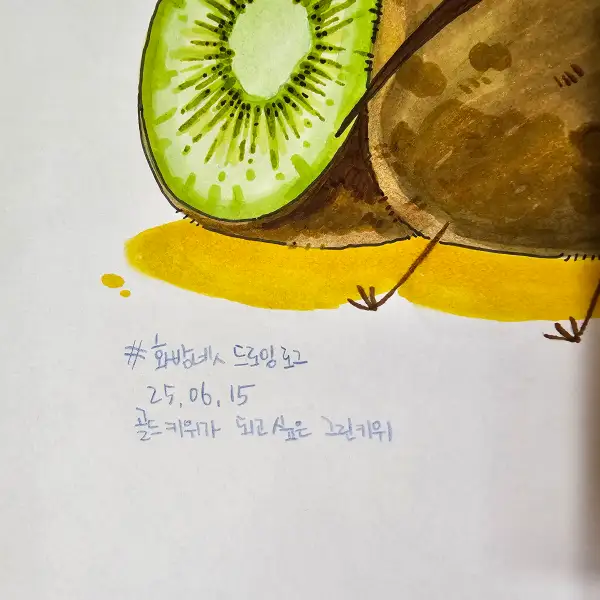 #화방넷 드로잉로그
25.06.15
골드키위가 되고싶은 그린키위